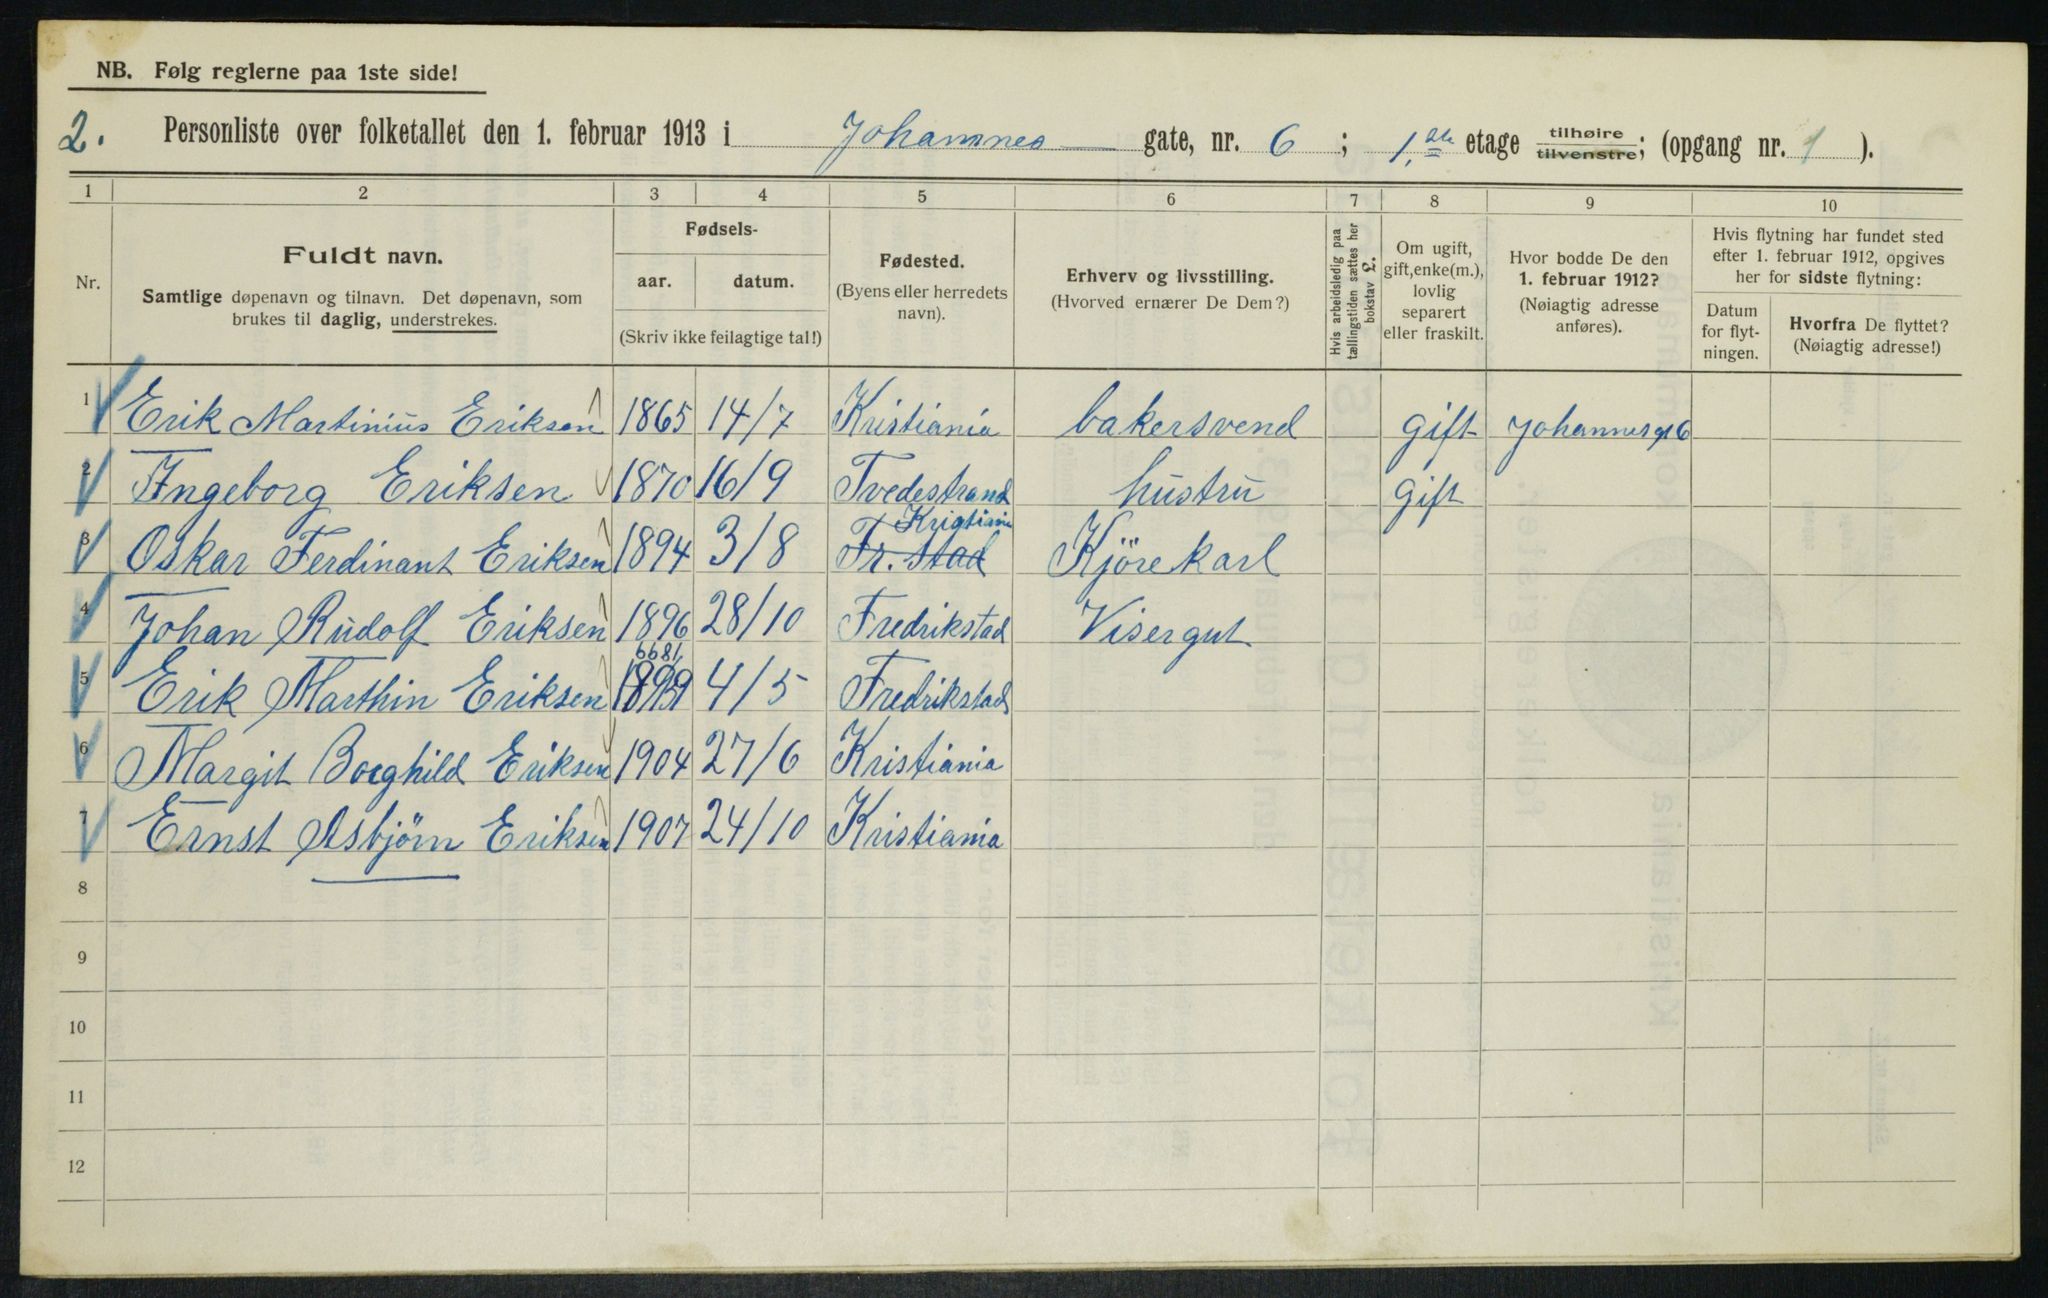 NB. Følg reglerne paa 1ste side!
2. Personliste over folketallet den 1. februar 1913 i Johannes gate, nr. 6 ; 1. etage tilhøire tilvenstre; (opgang nr. 1 ).
1 2 3 4 5 6 7 8 9 10
Nr.
Fuldt navn.
Samtlige døpenavn og tilnavn. Det døpenavn, som
brukes til daglig, understrekes.
Fødsels-
aar. datum.
(Skriv ikke feilagtige tal!)
Fødested.
(Byens eller herredets
navn).
Erhverv og livsstilling.
(Hvorved ernærer De Dem?)
Hvis arbeidsledig paa
tællingstiden sættes her
bokstav £.
Om ugift,
gift, enke(m.),
lovlig
separert
eller fraskilt.
Hvor bodde De den
1. februar 1912?
(Nøiagtig adresse
anføres).
Hvis flytning har fundet sted
efter 1. februar 1912, opgives
her for sidste flytning:
Datum
for flyt-
ningen.
Hvorfra De flyttet?
(Nøiagtig adresse!)
1 Erik Martinius Eriksen 1865 14/7 Kristiania bakersvend gift Johannesgt 6
2 Ingeborg Eriksen 1870 16/9 Tvedestrand hustru gift
Kristiania
3 Oskar Ferdinant Eriksen 1894 3/8 Fr. stad Kjörekarl
4 Johan Rudolf Eriksen 1896 28/10 Fredrikstad Visergut
5 Erik Marthin Eriksen 4/5 Fredrikstad
6 Margit Borghild Eriksen 1904 27/6 Kristiania
7 Ernst Asbjörn Eriksen 1907 24/10 Kristiania
8
9
10
11
12